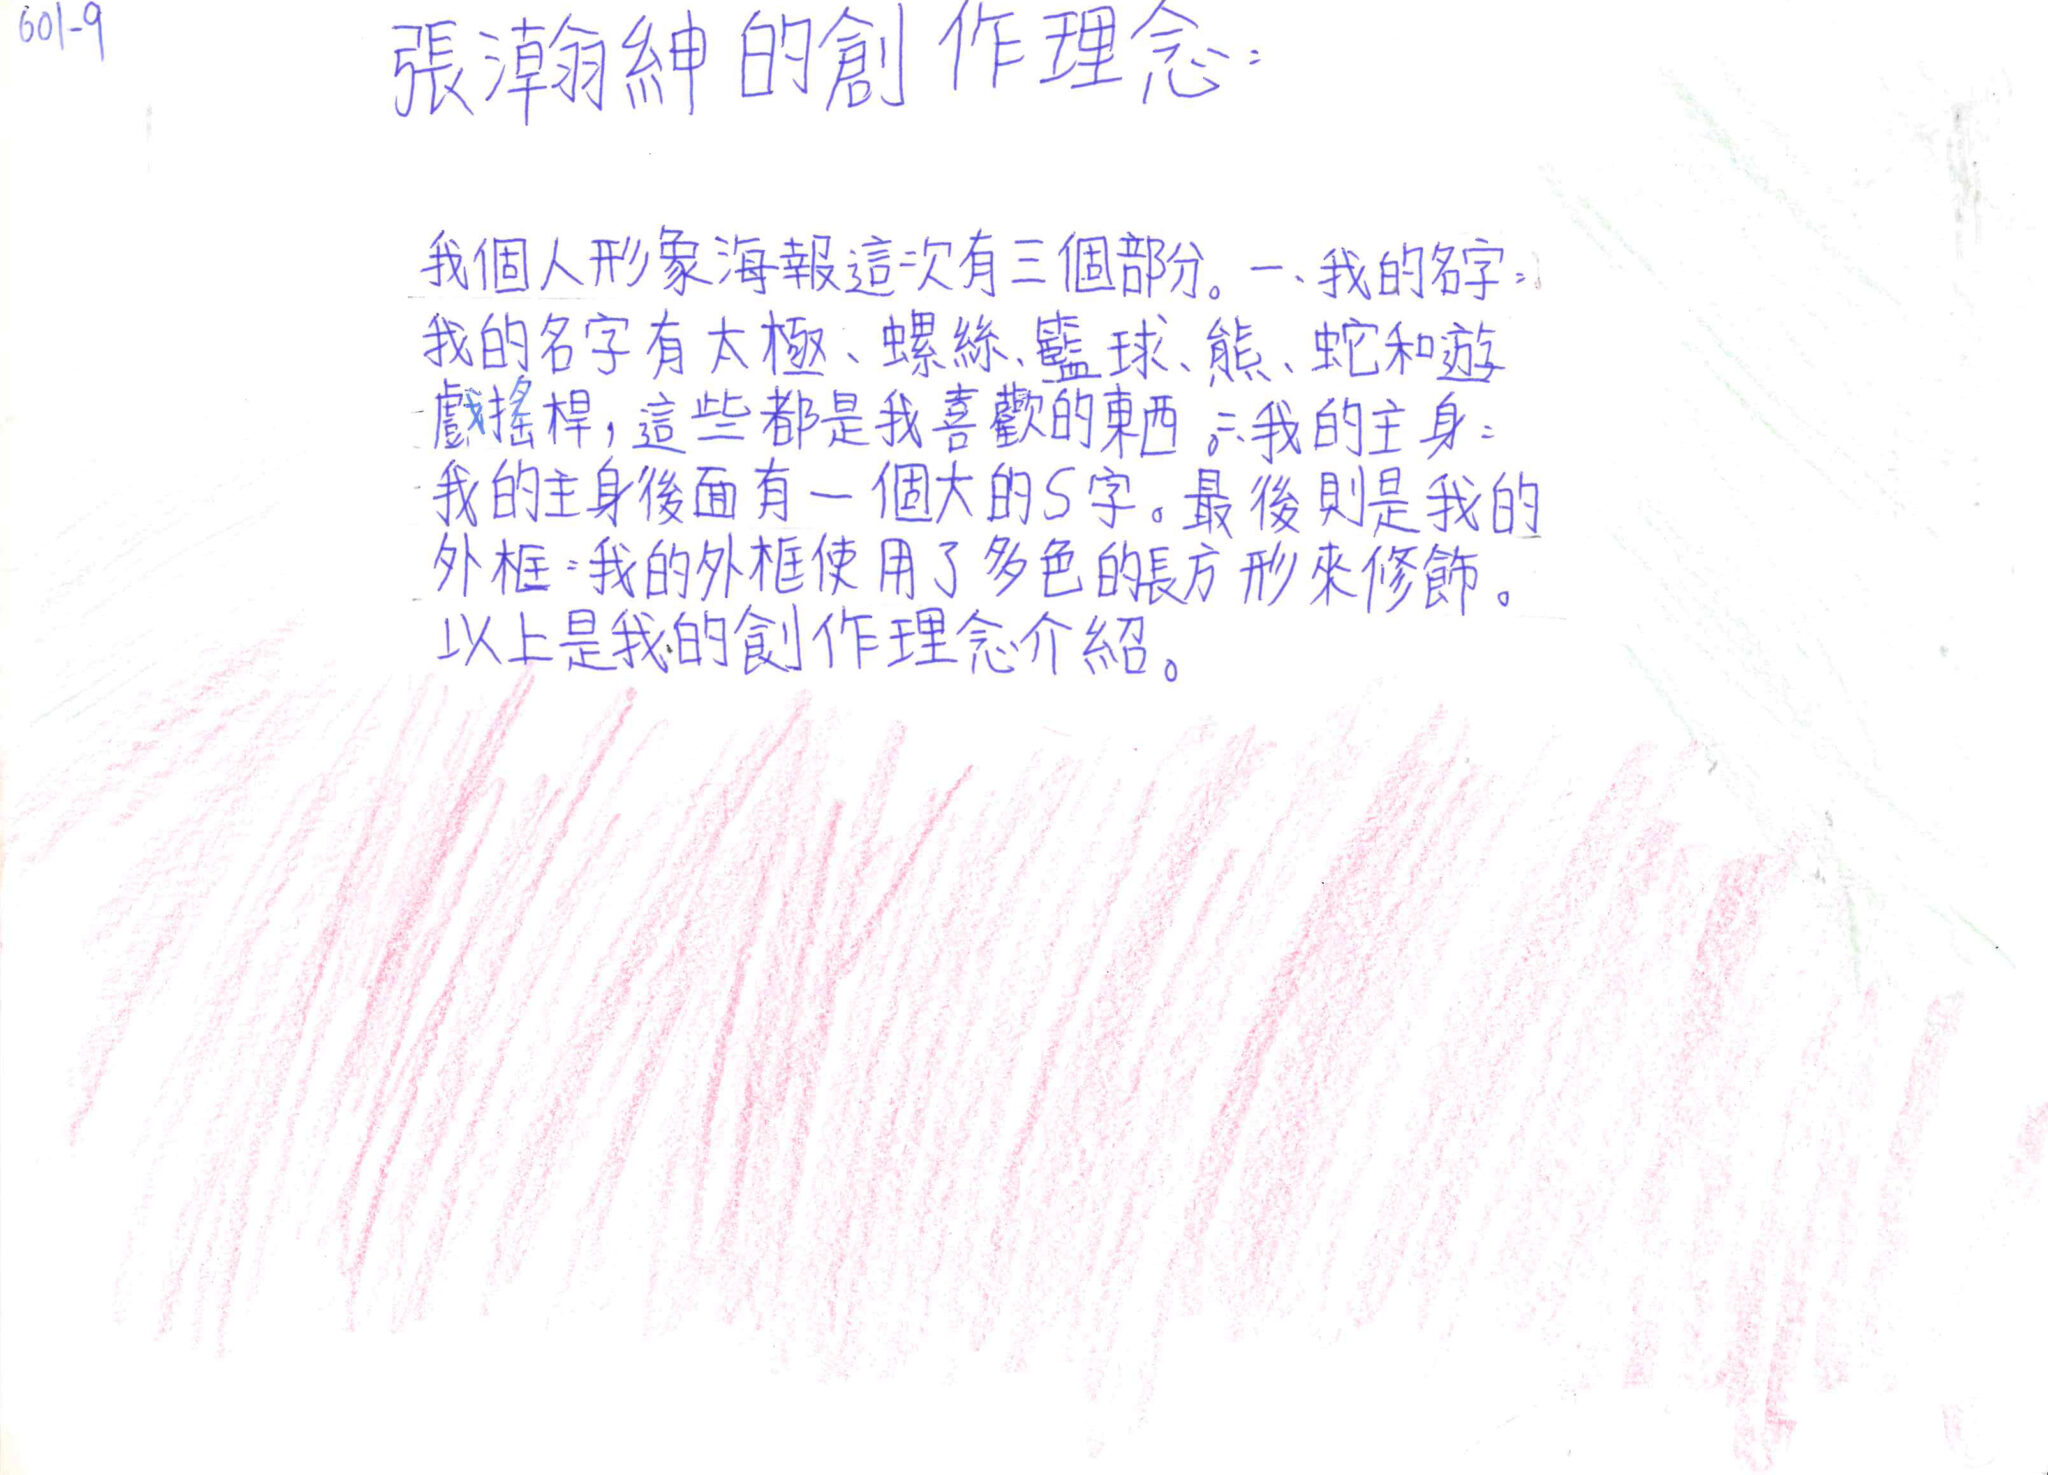 601-9
張瀚紳的創作理念：
我個人形象海報這次有三個部分。一、我的名字：
我的名字有太極、螺絲、籃球、熊、蛇和遊
戲搖桿，這些都是我喜歡的東西。二、我的主身：
我的主身後面有一個大的S字。最後則是我的
外框：我的外框使用了多色的長方形來修飾。
以上是我的創作理念介紹。